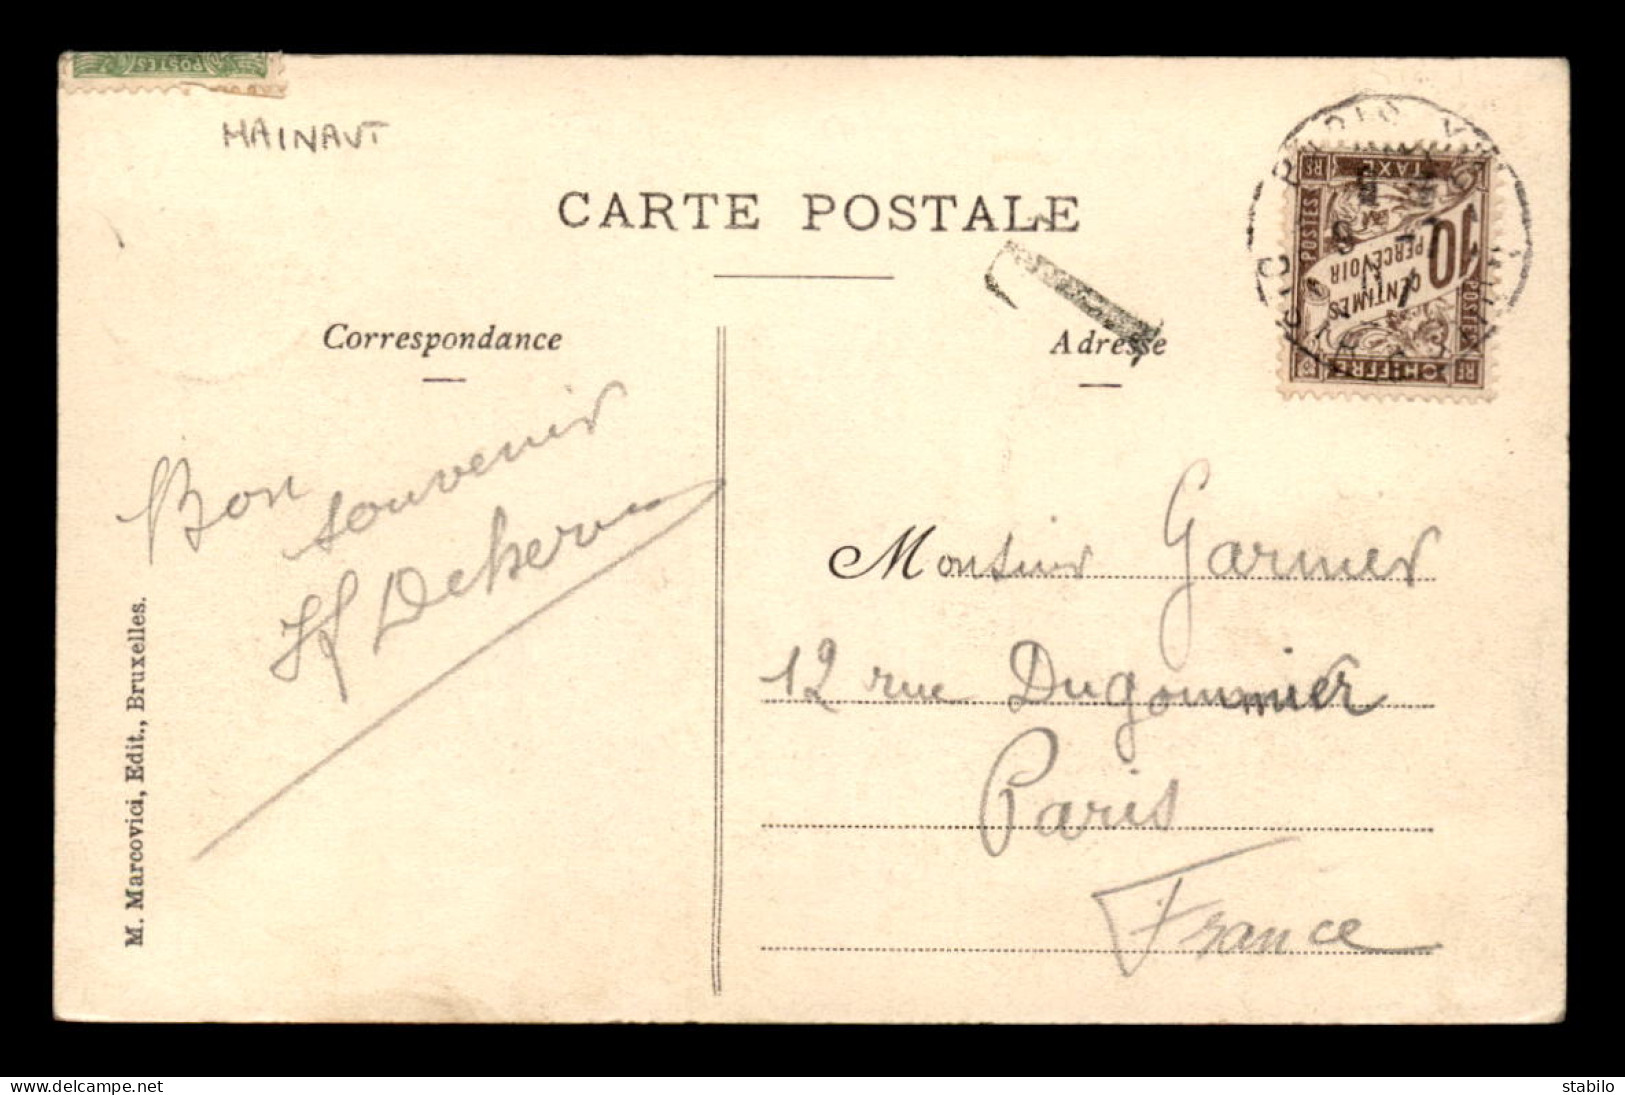 POSTES
HAINAUT
CARTE POSTALE
Correspondance
Adresse
T
CHIFFRE
TAXE
POSTES
POSTES
RF
RF
10
CENTIMES
PERCEVOIR
Bon
souvenir
Monsieur Garnier
12 rue Dugommier
Paris
France
M. Marcovici, Edit., Bruxelles.
delcampe.net
stabilo